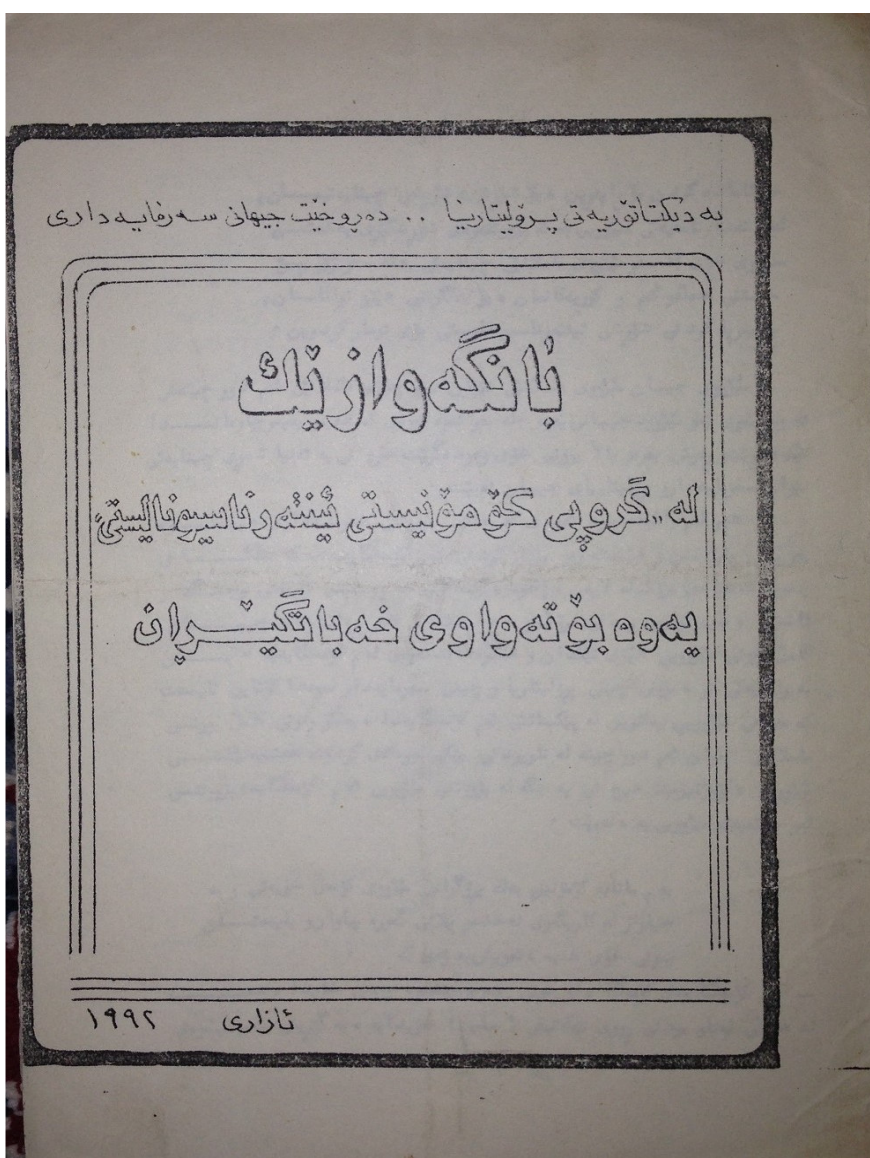 بە دیکتاتۆریەتی پرۆلیتاریا .. دەروخێت جیهانی سەرمایەداری
بانگەوازێك
لە ,,گروپی کۆمۆنیستی ئینتەرناسیونالیستی,,
یەوە بۆ تەواوی خەباتگێـــڕان
ئازاری ١٩٩٢